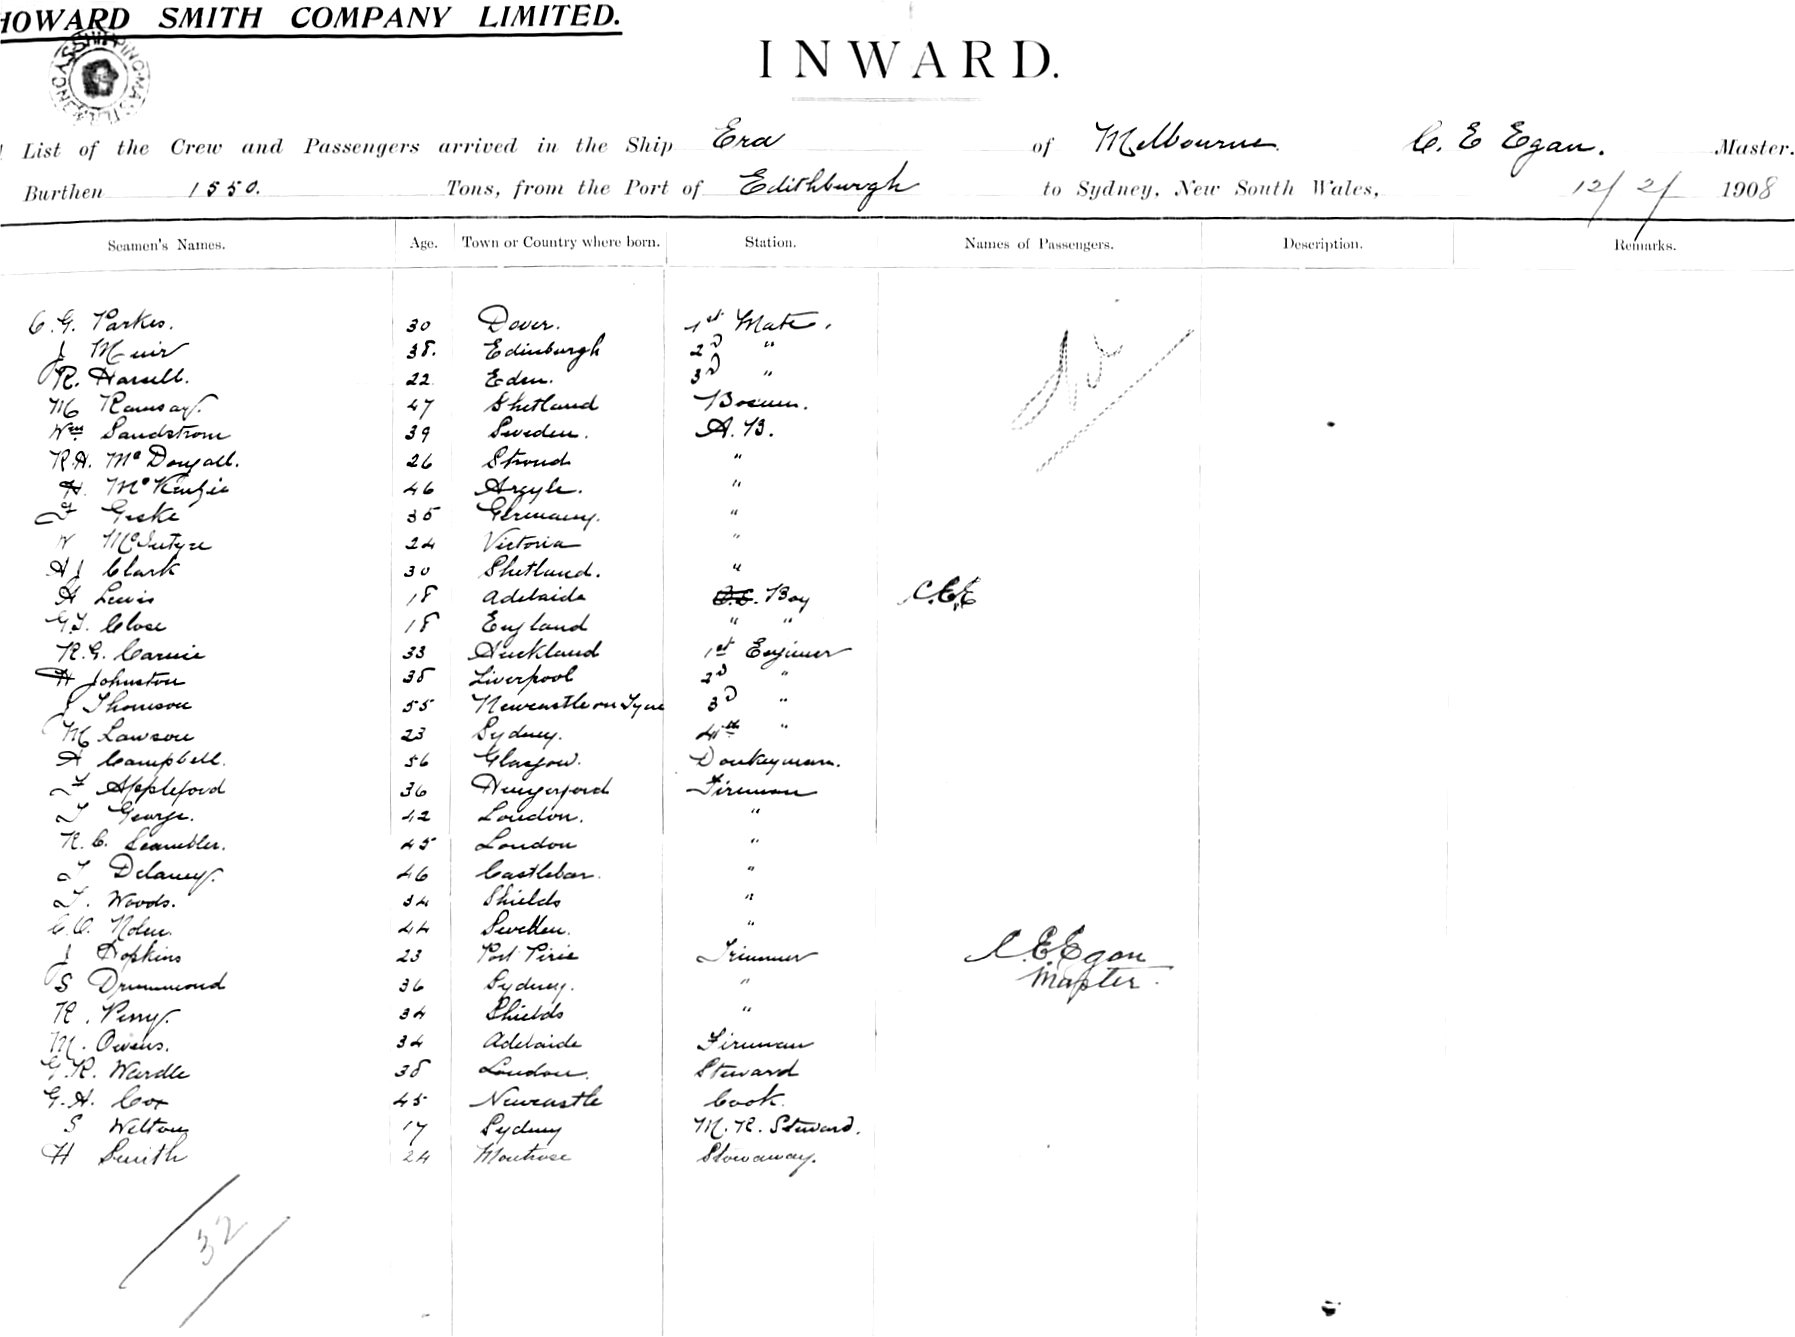 HOWARD SMITH COMPANY LIMITED.
NEWCASTLE SHIPPING MASTER
INWARD.
List of the Crew and Passengers arrived in the Ship Era of Melbourne. C. E Egan. Master.
Burthen 1550. Tons, from the Port of Edithburgh to Sydney, New South Wales, 12/2/1908
Seamen's Names. Age. Town or Country where born. Station. Names of Passengers. Description. Remarks.
C. G. Parkes. 30 Dover. 1st Mate.
J Muir 38. Edinburgh 2D "
R. Harsell. 22 Eden. 3D "
M Ramsay. 47 Shetland Bosun.
Wm Sandstrom 39 Sweden. A.B.
R.H. McDougall. 26 Stroud "
H. McKenzie 46 Argyle. "
F Geske 35 Germany. "
W McIntyre 24 Victoria "
A J Clark 30 Shetland. "
H Lewis 18 Adelaide O.S. Boy C.E.E
G.F. Close 18 England " "
R.G. Carnie 33 Auckland 1st Engineer
H Johnston 38 Liverpool 2D "
J Thomson 55 Newcastle on Tyne 3D "
M Lawson 23 Sydney. 4th "
A Campbell. 56 Glasgow. Donkeyman.
F Appleford 36 Hungerford Fireman
T George. 42 London. "
R. C. Scambler. 45 London "
T Delaney. 46 Castlebar. "
T. Woods. 34 Shields "
C.O. Nolen. 44 Sweden. "
J Hopkins 23 Port Pirie Trimmer C.E.Egan
S Drummond 36 Sydney. " Master.
R. Perry. 34 Shields "
M. Owens. 34 Adelaide Fireman
G.R. Wardle 38 London. Steward
G.H. Cox 45 Newcastle Cook.
S Welton 17 Sydney M.R. Steward.
H Smith 24 Montrose Stowaway.
32